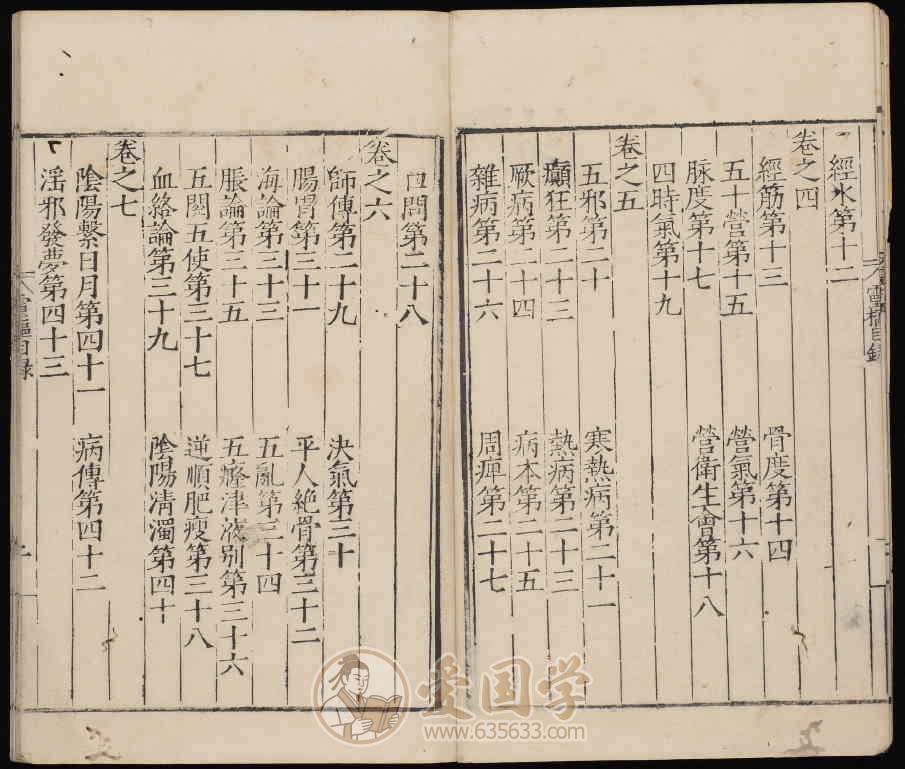 靈樞目録
經水第十二
卷之四
經筋第十三 骨度第十四
五十營第十五 營氣第十六
脉度第十七 營衛生會第十八
四時氣第十九
卷之五
五邪第二十 寒熱病第二十一
癲狂第二十三 熱病第二十三
厥病第二十四 病本第二十五
雜病第二十六 周痺第二十七
口問第二十八
卷之六
師傳第二十九 决氣第三十
腸胃第三十一 平人絶骨第三十二
海論第三十三 五亂第三十四
脹論第三十五 五癃津液别第三十六
五閱五使第三十七 逆順肥瘦第三十八
血絡論第三十九 陰陽凊濁第四十
卷之七
陰陽繫日月第四十一 病傳第四十二
淫邪發夢第四十三
靈樞目録
爱国学
www.635633.com